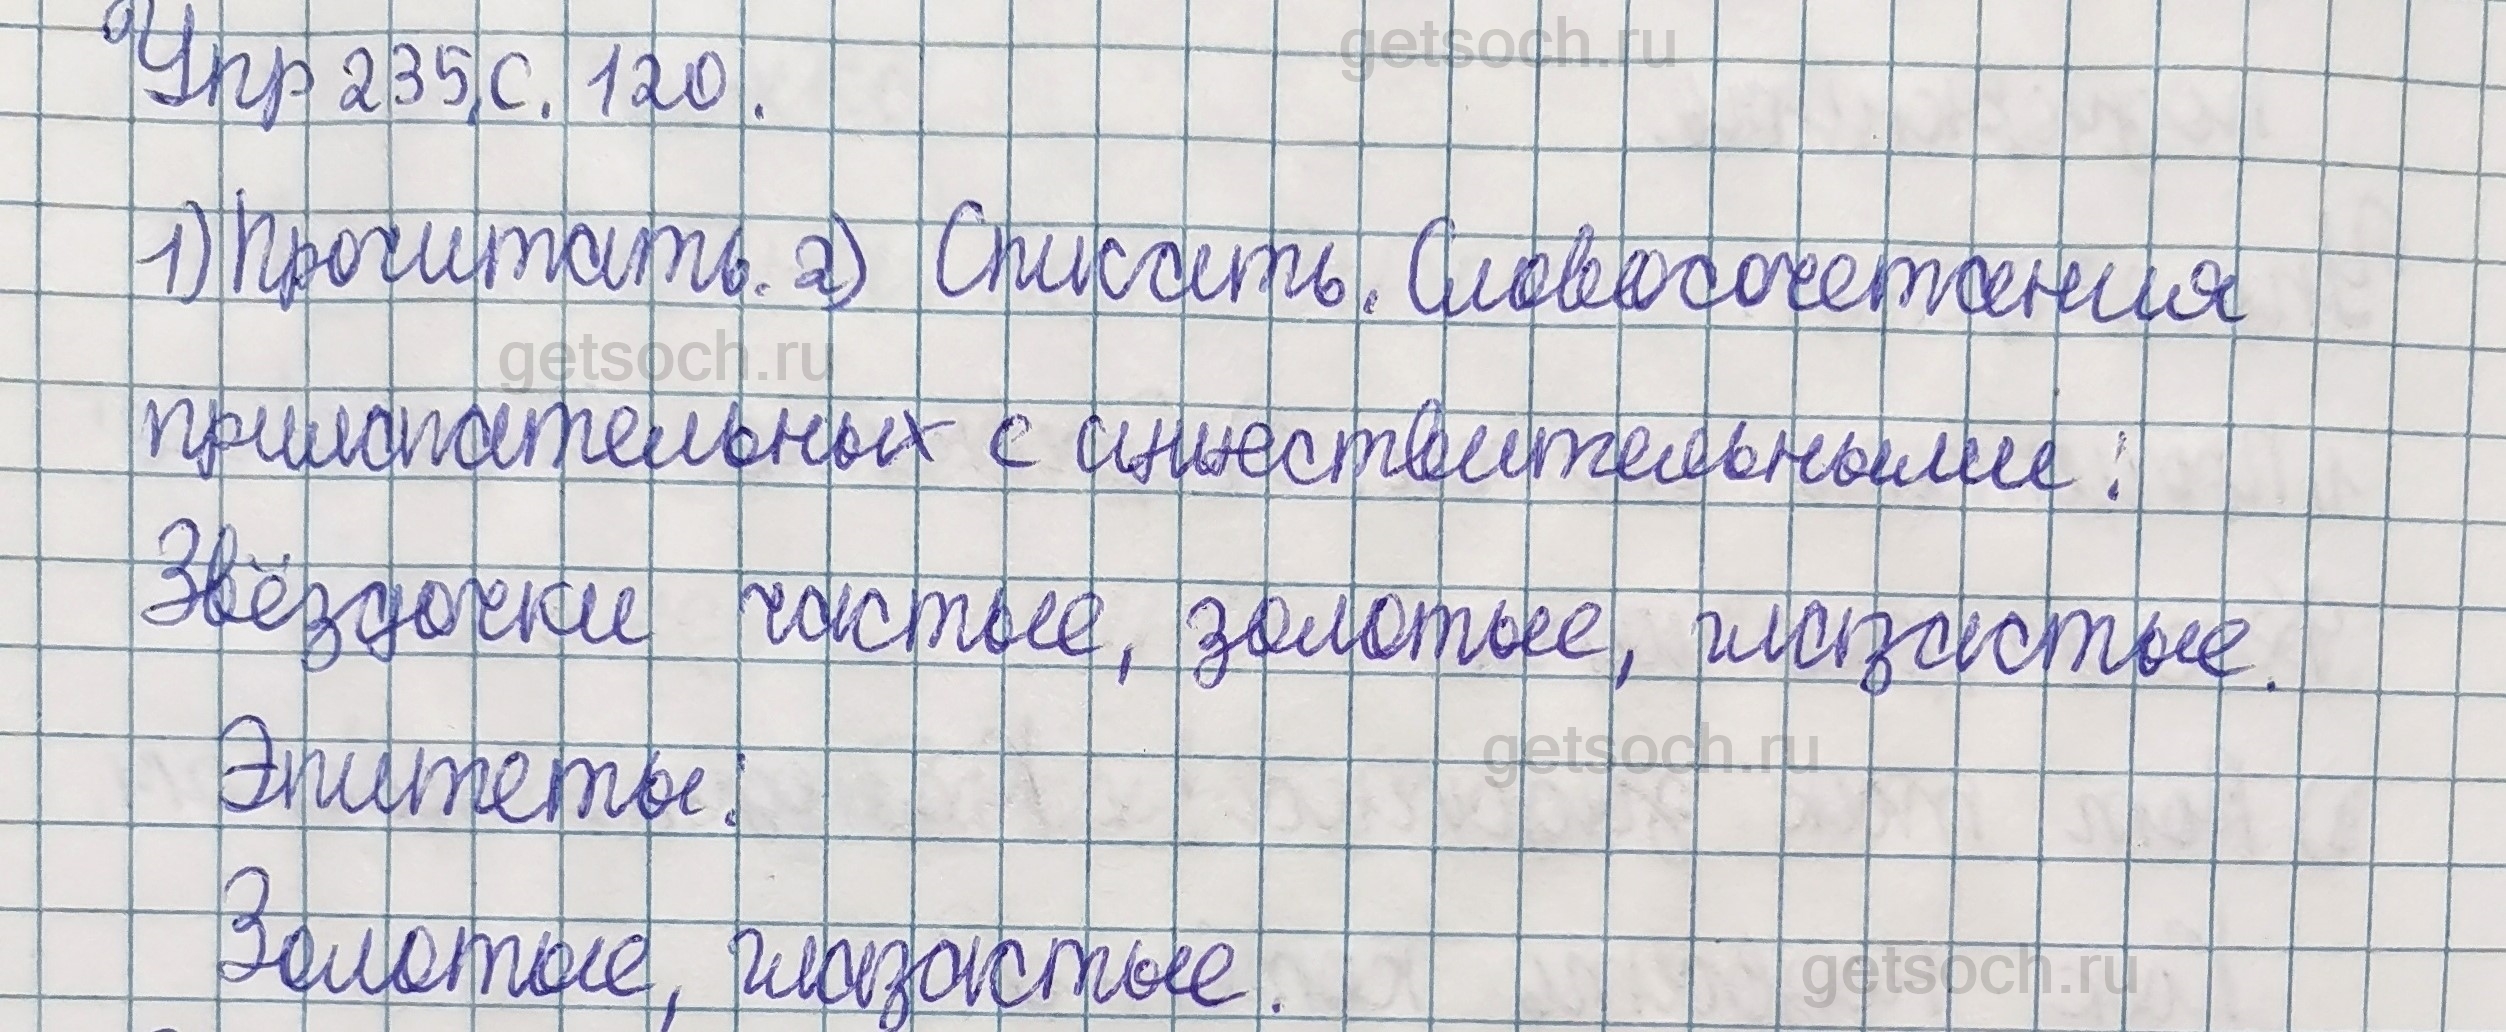 Упр 235,с. 120.
1) Прочитать. 2) Списать. Словосочетания
прилагательных с существительными:
Звёздочки частые, золотые, глазастые.
Эпитеты:
Золотые, глазастые.
getsoch.ru
getsoch.ru
getsoch.ru
getsoch.ru